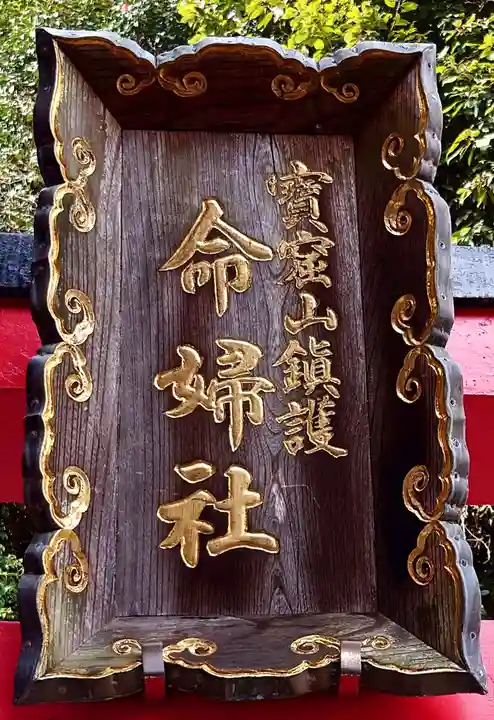 寳窟山鎮護
命婦社